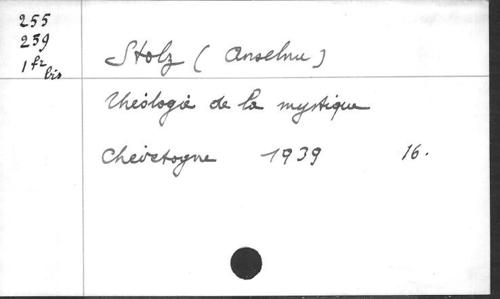 255
259
1 fi
bis
Stolz (Anselme)
Théologie de la mystique
Chevetogne 1939 16.